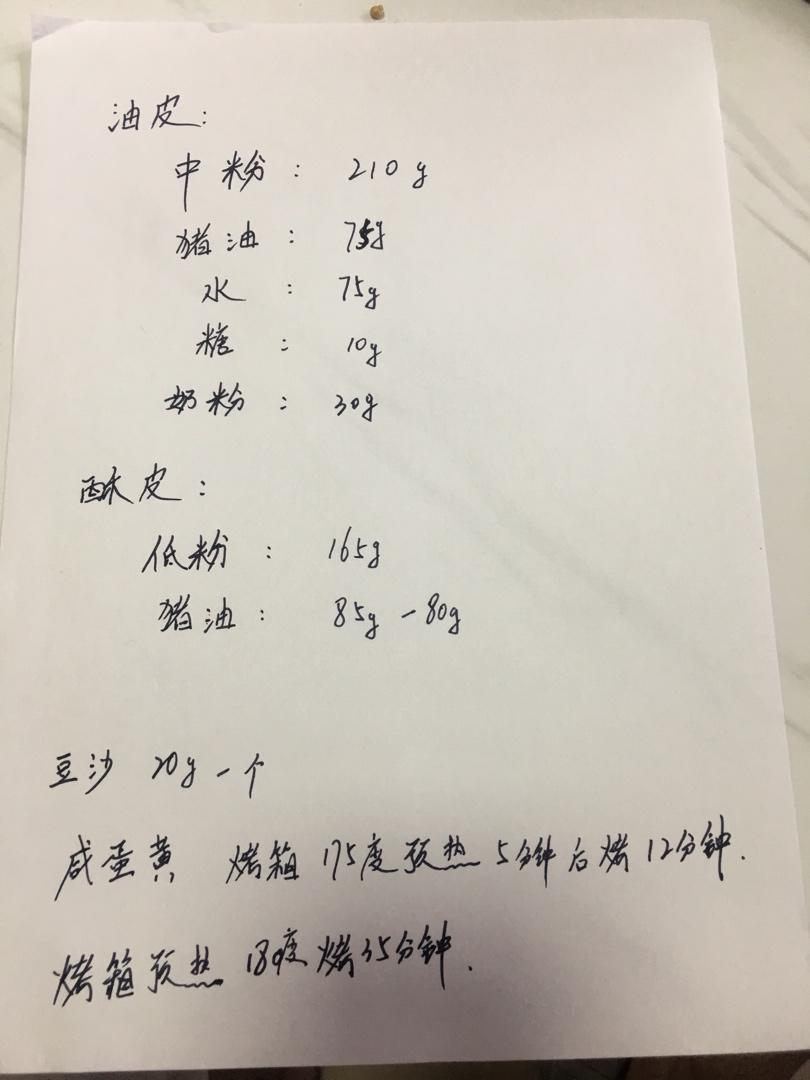 油皮:
中粉: 210g
猪油: 75g
水: 75g
糖: 10g
奶粉: 30g
酥皮:
低粉: 165g
猪油: 85g-80g
豆沙 20g一个
咸蛋黄 烤箱175度预热5分钟后烤12分钟.
烤箱预热180度烤35分钟.